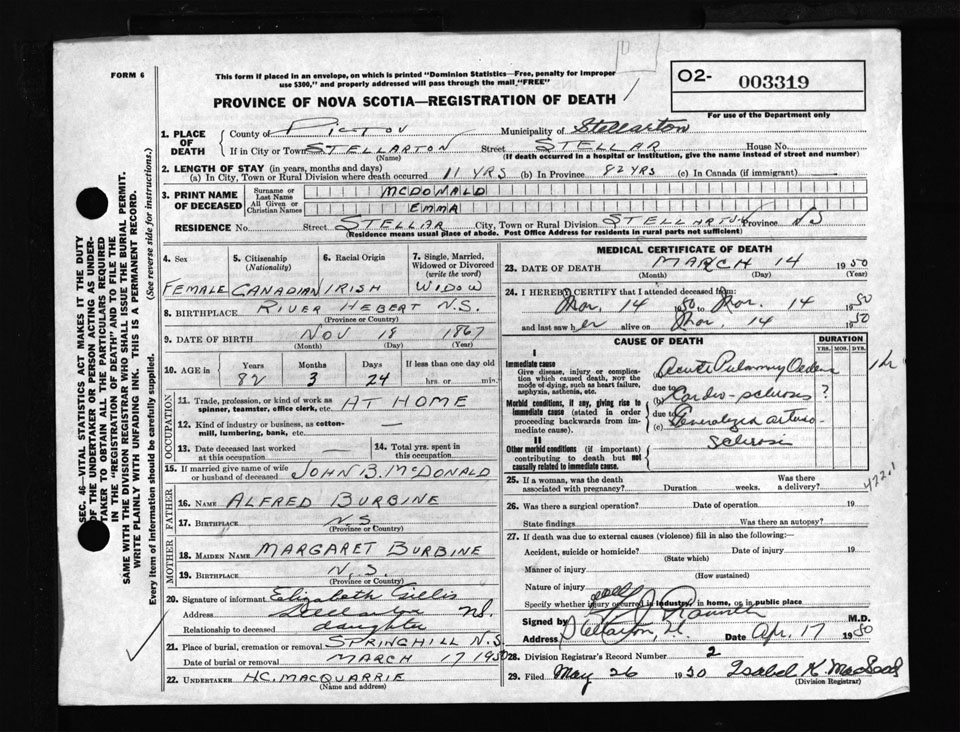 10
FORM 6
This form if placed in an envelope, on which is printed "Dominion Statistics—Free, penalty for improper
use $300," and properly addressed will pass through the mail "FREE"
O2- 003319
PROVINCE OF NOVA SCOTIA—REGISTRATION OF DEATH
For use of the Department only
1. PLACE OF DEATH
County of Pictou Municipality of Stellarton
If in City or Town STELLARTON Street STELLAR House No.
(Name) (If death occurred in a hospital or institution, give the name instead of street and number)
2. LENGTH OF STAY (in years, months and days)
(a) In City, Town or Rural Division where death occurred 11 YRS (b) In Province 82 YRS (c) In Canada (if immigrant)
3. PRINT NAME OF DECEASED
Surname or Last Name MCDONALD
All Given or Christian Names EMMA
RESIDENCE No. Street STELLAR City, Town or Rural Division STELLARTON Province NS
(Residence means usual place of abode. Post Office Address for residents in rural parts not sufficient)
4. Sex
FEMALE
5. Citizenship
(Nationality)
CANADIAN
6. Racial Origin
IRISH
7. Single, Married,
Widowed or Divorced
(write the word)
WIDOW
8. BIRTHPLACE RIVER HEBERT N.S.
(Province or Country)
9. DATE OF BIRTH NOV 18 1867
(Month) (Day) (Year)
10. AGE in
Years Months Days If less than one day old
82 3 24 hrs. or min.
OCCUPATION
11. Trade, profession, or kind of work as
spinner, teamster, office clerk, etc. AT HOME
12. Kind of industry or business, as cotton-
mill, lumbering, bank, etc. —
13. Date deceased last worked
at this occupation —
14. Total yrs. spent in
this occupation
15. If married give name of wife
or husband of deceased JOHN B. MCDONALD
FATHER
16. NAME ALFRED BURBINE
17. BIRTHPLACE N.S.
(Province or Country)
MOTHER
18. MAIDEN NAME MARGARET BURBINE
19. BIRTHPLACE N.S.
(Province or Country)
20. Signature of informant Elizabeth Gillis
Address Stellarton NS.
Relationship to deceased daughter
21. Place of burial, cremation or removal SPRINGHILL N.S.
Date of burial or removal MARCH 17 1950
22. UNDERTAKER H.C. MACQUARRIE
(Name and address)
MEDICAL CERTIFICATE OF DEATH
23. DATE OF DEATH MARCH 14 1950
(Month) (Day) (Year)
24. I HEREBY CERTIFY that I attended deceased from:
Mar. 14 1950 to Mar. 14 1950
and last saw her alive on Mar. 14 1950
CAUSE OF DEATH
DURATION
YRS. MOS. DYS.
I
Immediate cause
Give disease, injury or compli-
cation which caused death, NOT the
mode of dying, such as heart failure,
asphyxia, asthenia, etc.
(a) Acute Pulmonary Oedema 1 hr
due to
Morbid conditions, if any, giving rise to
immediate cause (stated in order
proceeding backwards from im-
mediate cause).
(b) Cardio-sclerosis ?
due to
(c) Generalized arterio-
sclerosis
II
Other morbid conditions (if important)
contributing to death but not
causally related to immediate cause.
422.1
25. If a woman, was the death
associated with pregnancy? Duration weeks. Was there
a delivery?
26. Was there a surgical operation? Date of operation 19
State findings Was there an autopsy?
27. If death was due to external causes (violence) fill in also the following:—
Accident, suicide or homicide? Date of injury 19
(State which)
Manner of injury
(How sustained)
Nature of injury
Specify whether injury occurred in industry, in home, or in public place
Signed by M.D.
Address Stellarton, Date Apr. 17 1950
28. Division Registrar's Record Number 2
29. Filed May 26 1950 Isabel K. MacLeod
(Division Registrar)
SEC. 46—VITAL STATISTICS ACT MAKES IT THE DUTY
OF THE UNDERTAKER OR PERSON ACTING AS UNDER-
TAKER TO OBTAIN ALL THE PARTICULARS REQUIRED
IN THE "REGISTRATION OF DEATH" AND TO FILE THE
SAME WITH THE DIVISION REGISTRAR WHO SHALL ISSUE THE BURIAL PERMIT.
WRITE PLAINLY WITH UNFADING INK. THIS IS A PERMANENT RECORD.
Every item of information should be carefully supplied. (See reverse side for instructions.)